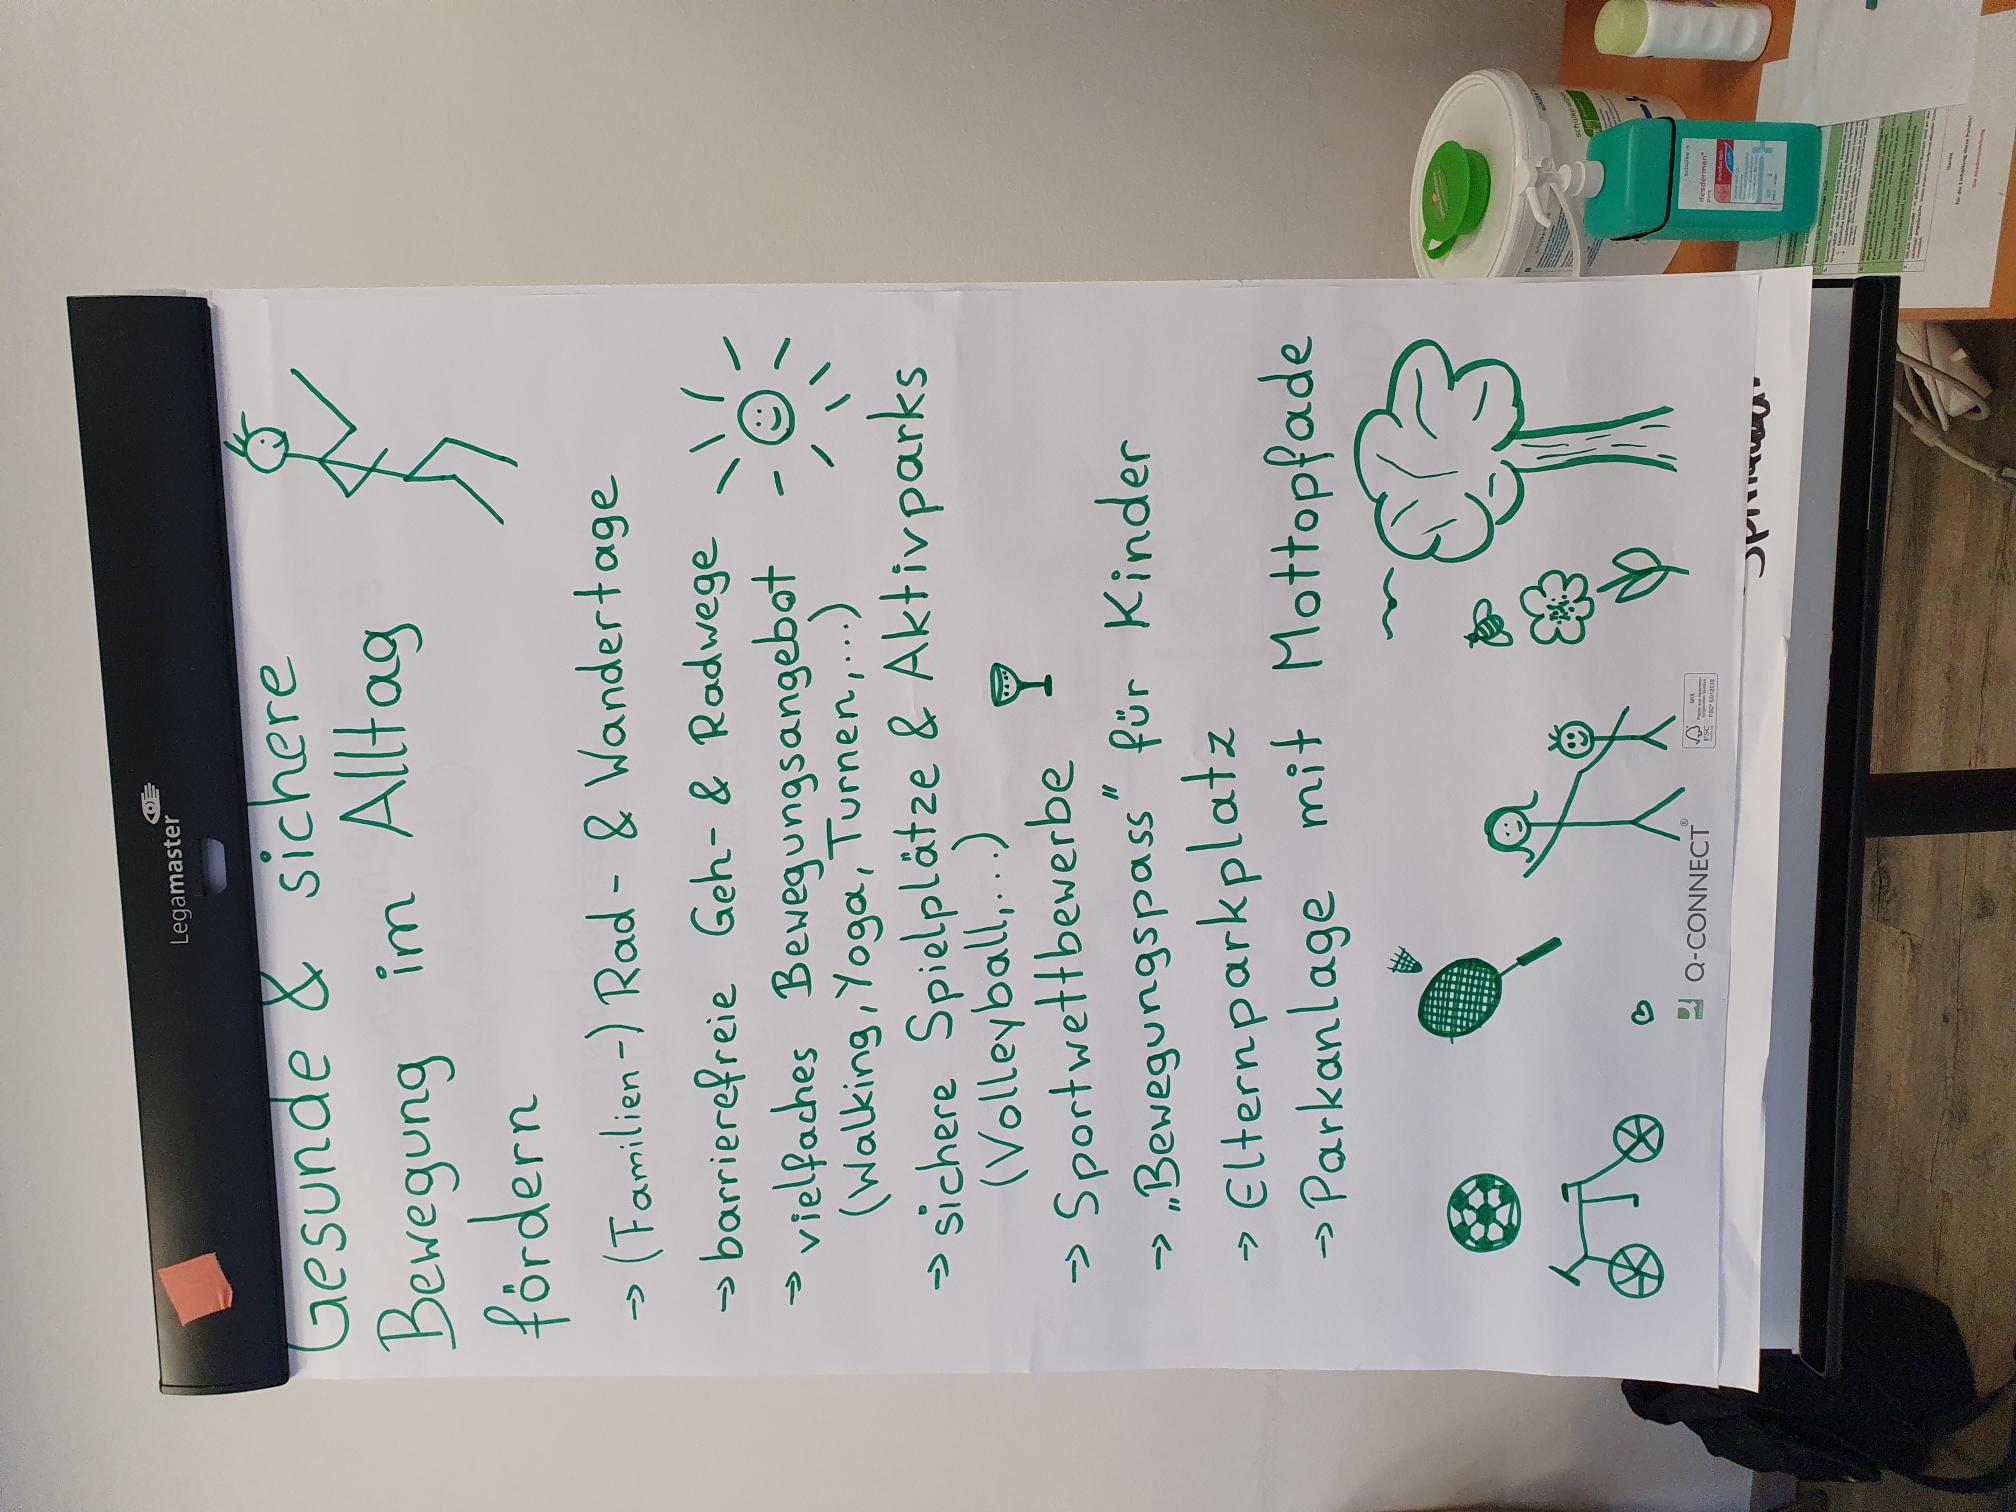 Legamaster
Gesunde & sichere
Bewegung im Alltag
fördern
→ (Familien-) Rad- & Wandertage
→ barrierefreie Geh- & Radwege
→ vielfaches Bewegungsangebot
(Walking, Yoga, Turnen,...)
→ sichere Spielplätze & Aktivparks
(Volleyball,...)
→ Sportwettbewerbe
→ „Bewegungspass" für Kinder
→ Elternparkplatz
→ Parkanlage mit Mottopfade
Q-CONNECT®
FSC
MIX
schülke
desderman®